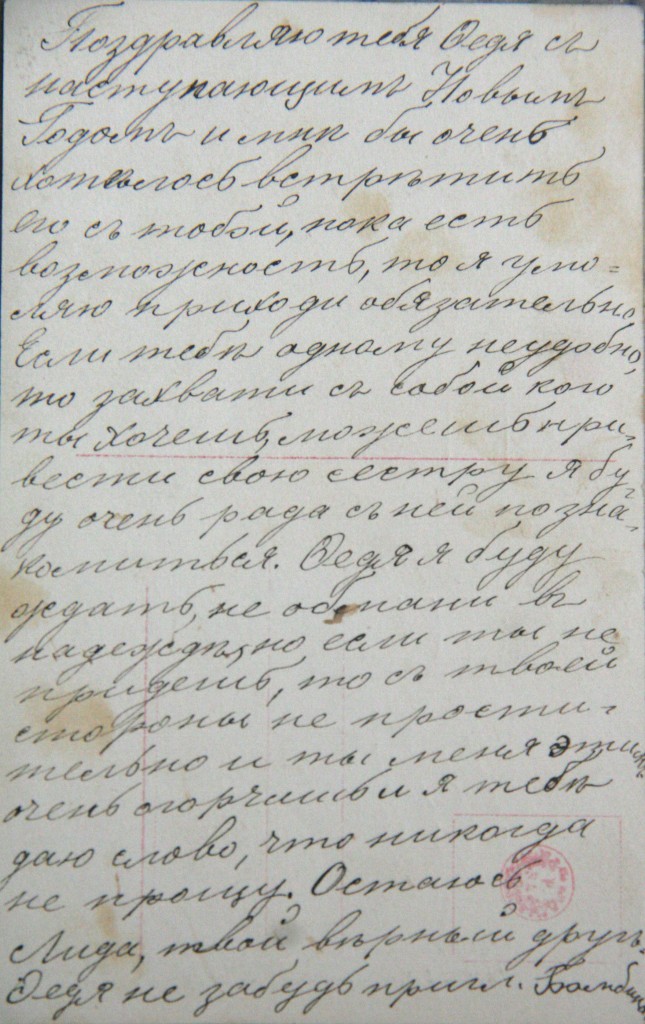 Поздравляю тебя Ѳедя съ
наступающимъ Новымъ
Годомъ и мнѣ бы очень
хотѣлось встрѣтить
его съ тобой, пока есть
возможность, то я умо=
ляю приходи обязательно
Если тебѣ одному неудобно,
то захвати съ собой кого
ты хочешь, можешь при-
вести свою сестру я бу-
ду очень рада съ ней позна-
комиться. Ѳедя я буду
ждать, не обмани въ
надеждѣ, но если ты не
придешь, то съ твоей
стороны не прости-
тельно и ты меня этимъ
очень огорчишь и я тебѣ
даю слово, что никогда
не прощу. Остаюсь
Лида, твой вѣрный другъ.
Ѳедя не забудь пригл.